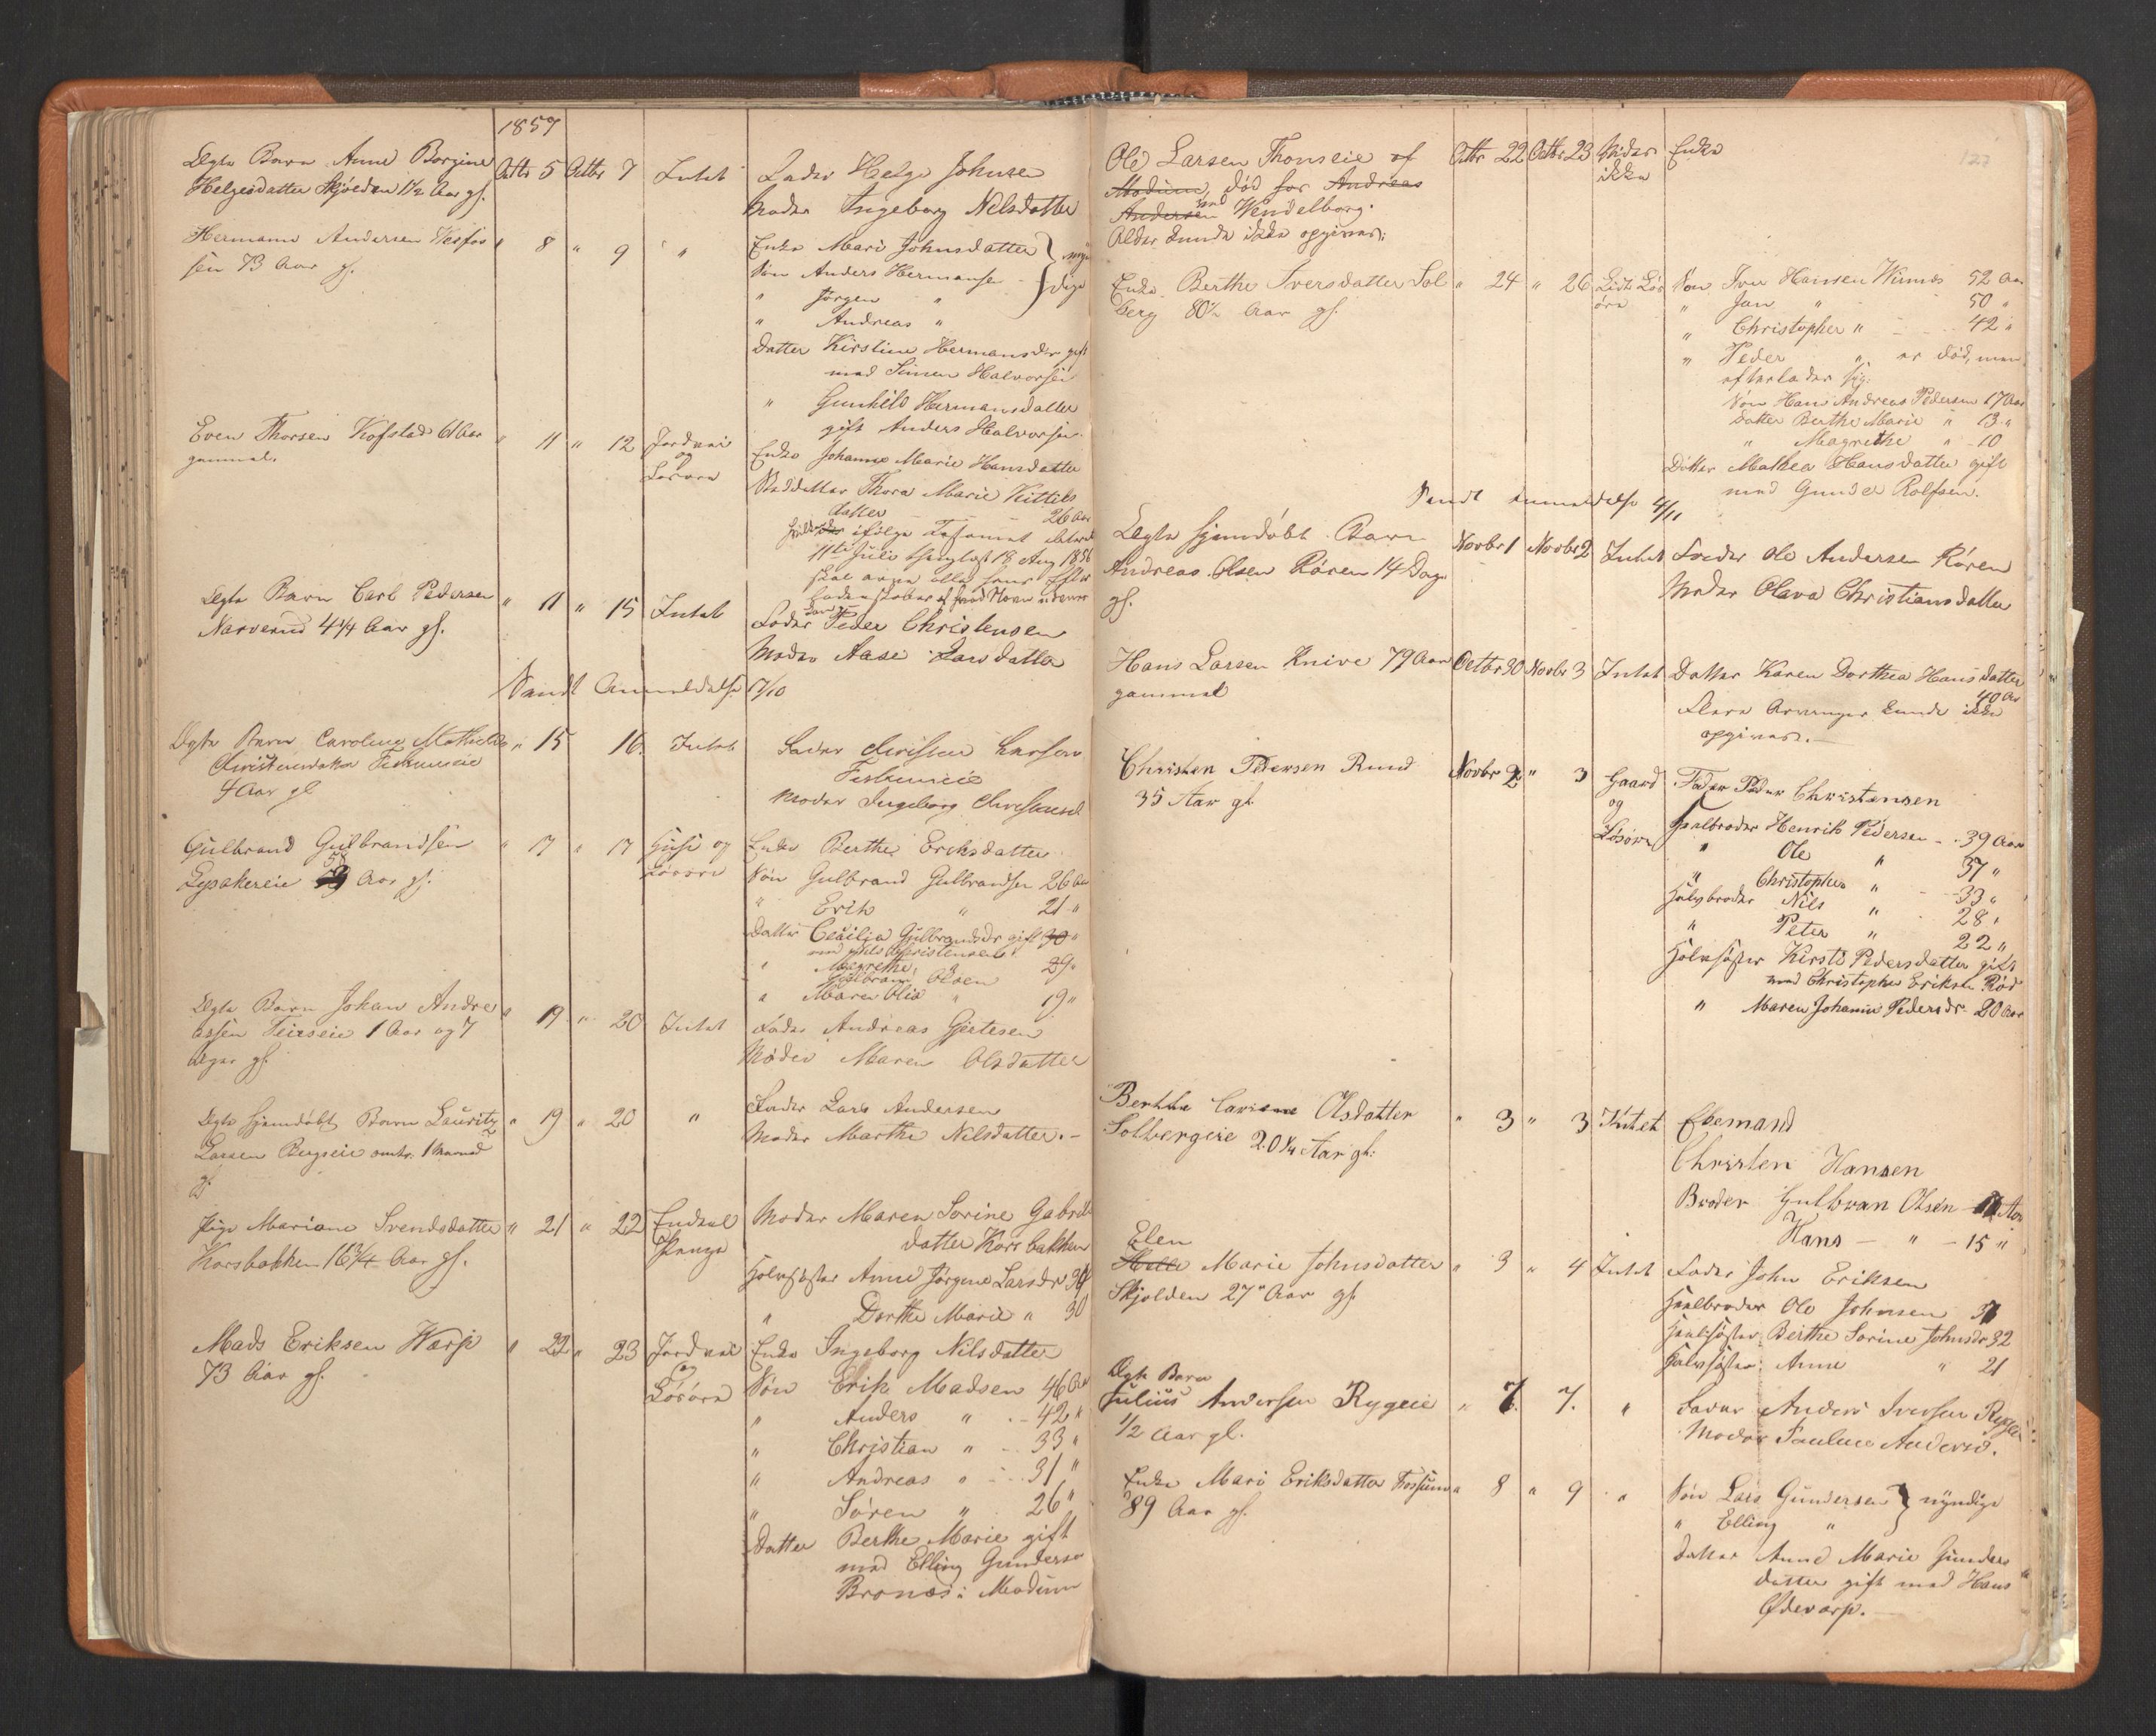 1857
Ægte Barn Anne Borgine
Helgesdatter Skjölden 1½ Aar gl.
Octbr 5 Octbr 7 Intet
Fader Helge Johnsen
Moder Ingeborg Nilsdatter
Hermann Andersen Vesfos
sen 73 Aar gl.
" 8 " 9 "
Enke Mari Johnsdatter
Søn Anders Hermansen
" Jørgen "
" Andreas "
myn
dige
Datter Kirstine Hermansdr gift
med Simen Halvorsen
" Gunhild Hermansdatter
gift Anders Halvorsen
Even Thorsen Kofstad 61 Aar
gammel.
" 11 " 12 Jordvei
og
Løsøre
Enke Johanne Marie Hansdatter
Thora Marie Kittils
datter 26 Aar
ifölge Testament
11te Juli thinglyst 18 Aug 1856
skal arve alle hans Efter
Ægte Barn Carl Pedersen
Narverud 4¼ Aar gl.
" 11 " 15 Intet
Fader Peder Christensen
Moder Aase Larsdatter
Sendt Anmeldelse 17/10
Ægte Barn Caroline Mathilde
Christensdatter
4 Aar gl
" 15 16. Intet
Fader Christen Larsen
Moder Ingeborg Christensd
Gulbrand Gulbrandsen
58
Aar gl.
" 17 " 17 Huse og
Løsøre
Enke Berthe Eriksdatter
Søn Gulbrand Gulbrandsen 26 Aar
" Erik " 21 "
Datter Cecilia Gulbrandsdr gift 30 "
med Nils Christensen
" Magrethe, " 29 "
Gulbrand Olsen
" Maren Olia " 19 "
Ægte Barn Johan Andre
assen 1 Aar og 7
Uger gl.
" 19 " 20 Intet
Fader Andreas Gjetesen
Moder Maren Olsdatter
Ægte hjemdöbt Barn Lauritz
Larsen Bergseie omtr. 1 Maaned
gl
" 19 " 20 "
Fader Lars Andersen
Moder Marthe Nilsdatter. -
Pige Mariane Svendsdatter
Korsbakken 16¾ Aar gl.
" 21 " 22 Endeel
Penge
Moder Maren Sorine Gabriels
datter Korsbakken
Halvsöster Anne Jörgine Larsdr 34
" Dorthe Marie " 30
Mads Eriksen Warp
73 Aar gl.
" 22 " 23 Jordvei
og
Løsøre
Enke Ingeborg Nilsdatter
Søn Erik Madsen 46 Aar
" Anders " - 42 "
" Christian " - 33 "
" Andreas " - 31 "
" Søren " 26 "
Datter Berthe Marie gift
med Elling Gundersen
Bronæs i Modum
Ole Larsen Thonseie af
Modum, död hos Andreas
Andersen Vendelborg.
Alder kunde ikke opgives.
Octbr 22 Octbr 23 Vides
ikke
Enke
Enke Berthe Iversdatter Sol
berg 80½ Aar gl.
" 24 " 26 Lidt Løs
øre
Søn Iver Hansen Vinnæs 52 Aar
" Jan " 50 "
" Christopher " - 42 "
" Peder " er död, men
efterlader sig:
Søn Hans Andreas Pedersen 17 Aar
Datter Berthe Marie " 13 "
" Magrethe " - 10
Datter Mathea Hansdatter gift
med Gunder Rolfsen.
Sendt Anmeldelse 4/11
Ægte hjemdöbt Barn
Andreas Olsen Røren 14 Dage
gl.
Novbr 1 Novbr 2 Intet
Fader Ole Andersen Røren
Moder Olava Christiansdatter
Hans Larsen Knive 79 Aar
gammel
Octbr 30 Novbr 3 Intet
Datter Karen Dorthea Hansdatter
40 Aar
Flere Arvinger kunde ikke
opgives. -
Christen Pedersen Rund
35 Aar gl.
Novbr 2 " 3 Gaard
og
Løsøre
Fader Peder Christensen
Heelbroder Henrik Pedersen - 39 Aar
" Ole " 37 "
" Christopher " - 33 "
Halvbroder Nils " 28 "
" Peter " 22 "
Halvsøster Kirsti Pedersdatter gift
med Christopher Eriksen Rød
" Maren Johanne Pedersdr. 20 Aar
Berthe Cariane Olsdatter
Solbergeie 20¼ Aar gl.
" 3 " 3 Intet
Ektemand
Christen Hansen
Broder Gulbran Olsen Aar
Hans - " - 15 "
Elen
Marie Johnsdatter
Skjolden 27 Aar gl
" 3 " 4 Intet
Fader John Eriksen
Heelbroder Ole Johnsen
Heelsöster Berthe Sorine Johnsdr 32
Halvsöster Anne " 21
Ægte Barn
Julius Andersen Rygeie
1/2 Aar gl.
" 7. 7. "
Fader Anders Iversen Rygeie
Moder Pauline Andersd.
Enke Mari Eriksdatter Fossum
89 Aar gl.
" 8 " 9 "
Søn Lars Gundersen
" Elling "
myndige
Datter Anne Marie Gunders
datter gift med Hans
Ødevarp. -